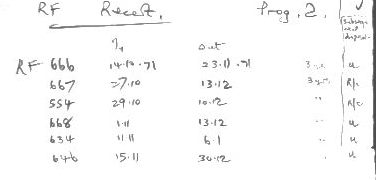 RF Recest. Prog. 2.
In out
RF 666 14.10.71 23.11.71 u
667 27.10 13.12 R/c
554 29.10 10.12 " R/c
668 1.11 13.12 " u
634 11.11 6.1 " u
646 15.11 30.12 . u